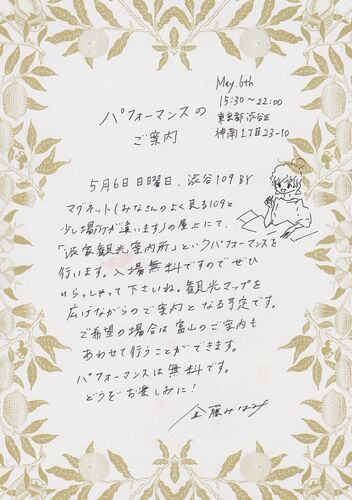 May. 6th
15:30~22:00
東京都渋谷区
神南1丁目23-10
パフォーマンスの
ご案内
5月6日 日曜日、渋谷109 BY
マグネット(みなさんのよく見る109と
少し場所が違います)の屋上にて、
「渋家観光案内所」というパフォーマンスを
行います。入場無料ですのでぜひ
いらっしゃって下さいね。観光マップを
広げながらのご案内となる予定です。
ご希望の場合は富山のご案内も
あわせて行うことができます。
パフォーマンスは無料です。
どうぞお楽しみに!
藤み